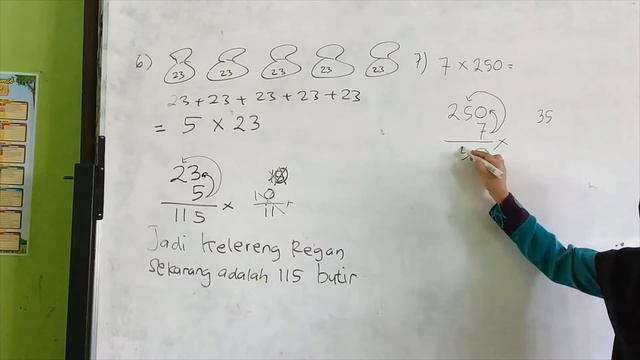 6)
23 23 23 23 23
23 + 23 + 23 + 23 + 23
= 5 × 23
23
5 ×
115
10
11
Jadi kelereng Regan
sekarang adalah 115 butir
7) 7 × 250 =
250
7 ×
50
35